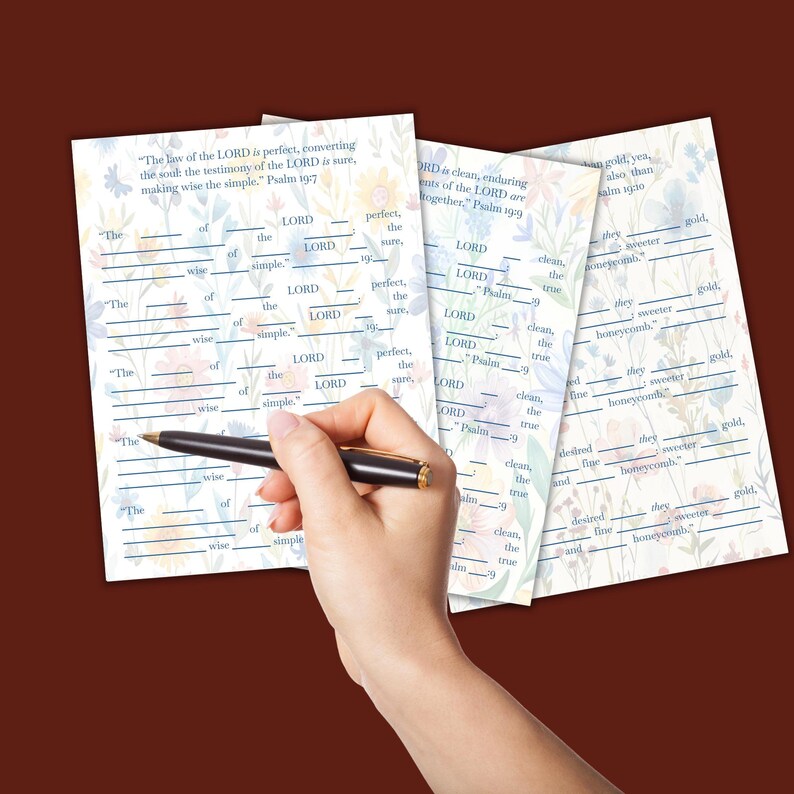 “The law of the LORD is perfect, converting
the soul: the testimony of the LORD is sure,
making wise the simple.” Psalm 19:7
“The ____ of ____ LORD ____ perfect,
____ the ____: the
____ of ____ LORD ____ sure,
____ wise ____ simple.” ____ 19:__
“The ____ of ____ LORD ____ perfect,
____ the ____: the
____ of ____ LORD ____ sure,
____ wise ____ simple.” ____ 19:__
“The ____ of ____ LORD ____ perfect,
____ the ____: the
____ of ____ LORD ____ sure,
____ wise ____ simple.”
“The
“The ____ of
____ of
____ wise ____ simple
is clean, enduring
of the LORD are
altogether.” Psalm 19:9
LORD ____ clean,
____: the
LORD ____ true
____.” Psalm __:9
LORD ____ clean,
____: the
LORD ____ true
____.” Psalm __:9
LORD ____ clean,
____: the
LORD ____ true
____.” Psalm __:9
clean,
the
true
__:9
clean,
the
true
__:9
than gold, yea,
also than
19:10
they ____ gold,
____: sweeter ____
honeycomb.”
they ____ gold,
____: sweeter ____
honeycomb.”
they ____ gold,
fine ____: sweeter ____
____ honeycomb.”
desired ____ they ____ gold,
____ fine ____: sweeter ____
and ____ honeycomb.”
desired ____ they ____ gold,
____ fine ____: sweeter ____
and ____ honeycomb.”